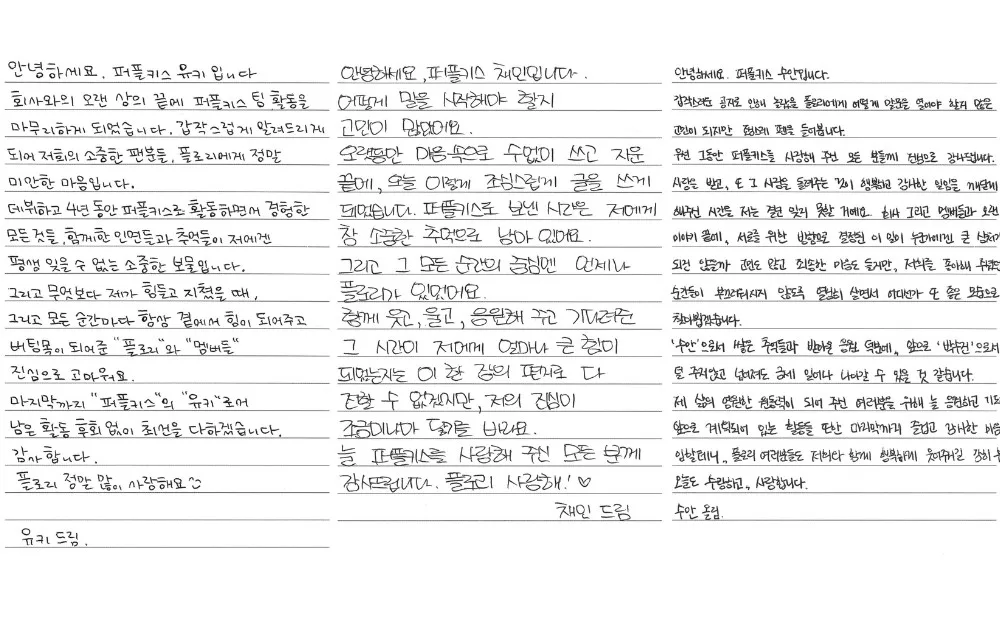 안녕하세요. 퍼플키스 유키입니다
회사와의 오랜 상의 끝에 퍼플키스 팀 활동을
마무리하게 되었습니다. 갑작스럽게 알려드리게
되어 저희의 소중한 팬분들, 플로리에게 정말
미안한 마음입니다.
데뷔하고 4년 동안 퍼플키스로 활동하면서 경험한
모든것들, 함께한 인연들과 추억들이 저에겐
평생 잊을 수 없는 소중한 보물입니다.
그리고 무엇보다 제가 힘들고 지쳤을 때,
그리고 모든 순간마다 항상 곁에서 힘이 되어주고
버팀목이 되어준 "플로리"와 "멤버들"
진심으로 고마워요.
마지막까지 "퍼플키스"의 "유키"로서
남은 활동 후회 없이 최선을 다하겠습니다.
감사합니다.
플로리 정말 많이 사랑해요
유키 드림.
안녕하세요, 퍼플키스 채인입니다.
어떻게 말을 시작해야 할지
고민이 많았어요.
오랫동안 마음속으로 수없이 쓰고 지운
끝에, 오늘 이렇게 조심스럽게 글을 쓰게
되었습니다. 퍼플키스로 보낸 시간은 저에게
참 소중한 추억으로 남아 있어요.
그리고 그 모든 순간의 중심엔 언제나
플로리가 있었어요.
함께 웃고, 울고, 응원해 주고 기다려준
그 시간이 저에게 얼마나 큰 힘이
되었는지는 이 한 장의 편지로 다
전할 수 없겠지만, 저의 진심이
조금이나마 닿기를 바라요.
늘 퍼플키스를 사랑해 주신 모든 분께
감사드립니다. 플로리 사랑해! ♡
채인 드림
안녕하세요. 퍼플키스 수안입니다.
갑작스러운 공지로 인해 놀랐을 플로리에게 어떻게 말문을 열어야 할지 많은
고민이 되지만 조심스레 펜을 들어봅니다.
우선 그동안 퍼플키스를 사랑해 주신 모든 분들께 진심으로 감사드립니다.
사랑을 받고, 또 그 사랑을 돌려주는 것이 행복하고 감사한 일임을 깨닫게
해주었던 시간을 저는 결코 잊지 못할 거예요. 회사 그리고 멤버들과 오랜
이야기 끝에, 서로를 위한 방향으로 결정된 이 일이 누군가에겐 큰 상처가
되진 않을까 고민도 많고 죄송한 마음도 들지만, 저희를 좋아해 주셨던
순간들이 부끄러워지지 않도록 열심히 살면서 어디선가 또 좋은 모습으로
찾아뵙겠습니다.
'수안'으로서 쌓은 추억들과 받아온 응원 덕분에, 앞으로 '박수진'으로서
덜 주저앉고 넘어져도 금세 일어나 나아갈 수 있을 것 같습니다.
제 삶의 영원한 원동력이 되어 주신 여러분을 위해 늘 응원하고
앞으로 계획되어 있는 활동들 또한 마지막까지 즐겁고 감사한 마음
임할테니, 플로리 여러분들도 저희와 함께 행복하게 웃어주시길 감히
오늘도 수랑하고, 사랑합니다.
수안 올림.